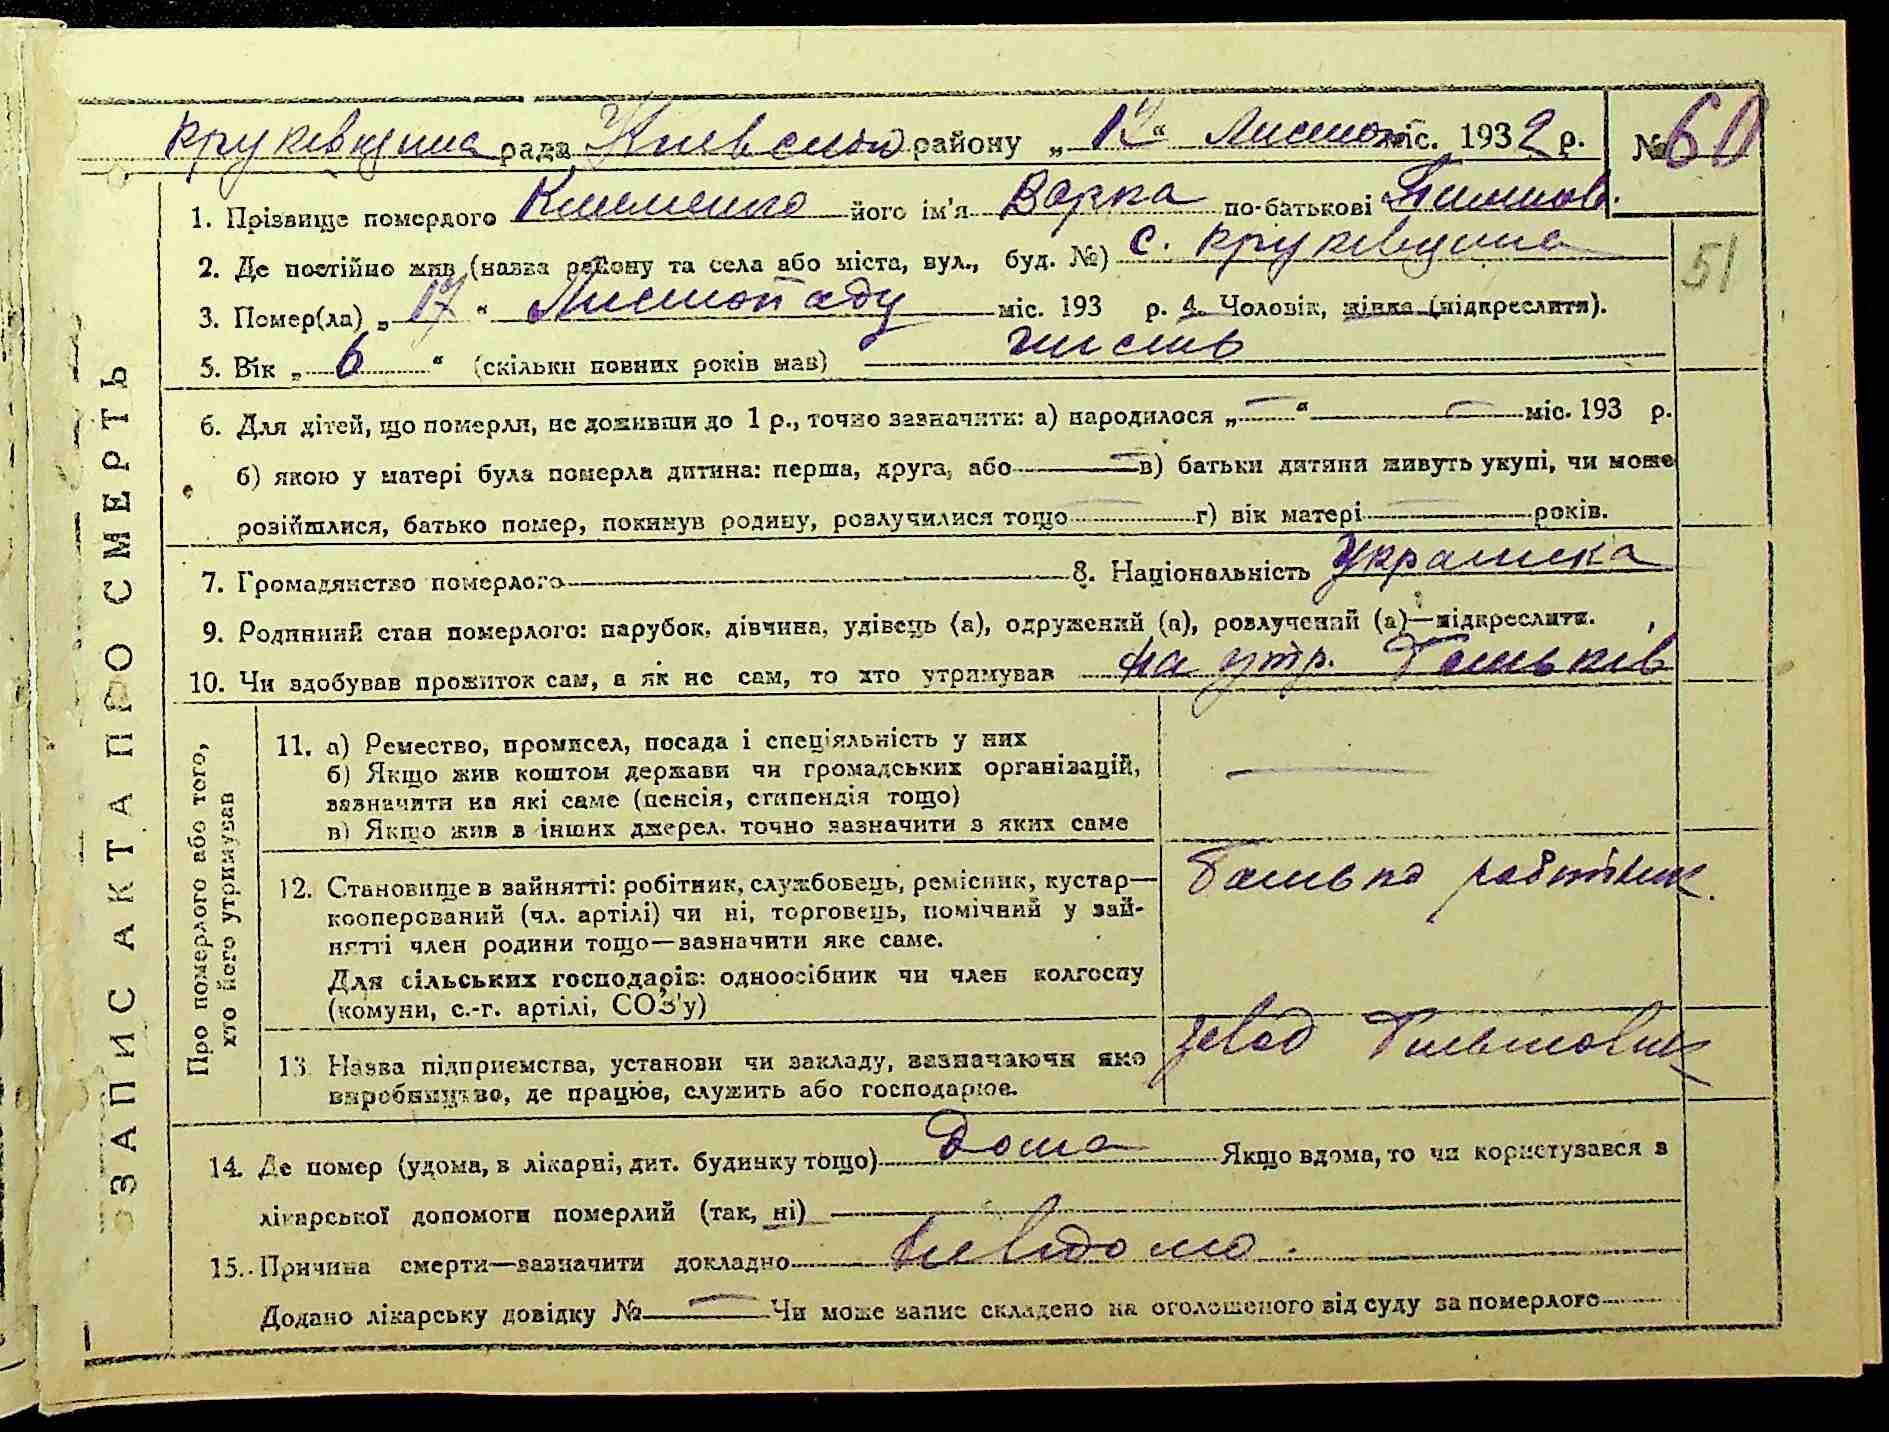 Круківщина рада Київського району „17“ Листопад міс. 1932 р. № 60
1. Прізвище померлого Клименко його ім'я Варка по-батькові
51
2. Де постійно жив (назва району та села або міста, вул., буд. №) с. Круківщина
3. Помер(ла) „17“ Листопаду міс. 193 р. 4. Чоловік, жінка (підкреслити).
5. Вік „6“ (скільки повних років мав) шість
6. Для дітей, що померли, не доживши до 1 р., точно зазначити: а) народилося „—“ — міс. 193 р.
б) якою у матері була померла дитина: перша, друга, або — в) батьки дитини живуть укупі, чи може
розійшлися, батько помер, покинув родину, розлучилися тощо — г) вік матері — років.
7. Громадянство померлого 8. Національність Українка
9. Родинний стан померлого: парубок, дівчина, удівець (а), одружений (а), розлучений (а)—підкреслити.
10. Чи здобував прожиток сам, а як не сам, то хто утримував на утр. Батьків
ЗАПИС АКТА ПРО СМЕРТЬ
Про померлого або того,
хто його утримував
11. а) Ремество, промисел, посада і спеціяльність у них
б) Якщо жив коштом держави чи громадських організацій,
зазначити на які саме (пенсія, стипендія тощо)
в) Якщо жив з інших джерел, точно зазначити з яких саме
—
12. Становище в зайнятті: робітник, службовець, ремісник, кустар—
кооперований (чл. артілі) чи ні, торговець, помічний у зай-
нятті член родини тощо—зазначити яке саме.
Для сільських господарів: одноосібник чи член колгоспу
(комуни, с.-г. артілі, СОЗ'у)
Батько робітник.
13. Назва підприємства, установи чи закладу, зазначаючи яко
виробництво, де працює, служить або господарює.
завод Більшовик
14. Де помер (удома, в лікарні, дит. будинку тощо) Дома Якщо вдома, то чи користувався в
лікарської допомоги померлий (так, ні)
15. Причина смерти—зазначити докладно невідомо.
Додано лікарську довідку № — Чи може запис складено на оголошеного від суду за померлого